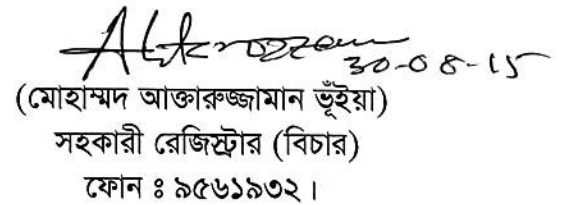 30-08-15
(মোহাম্মদ আক্তারুজ্জামান ভূঁইয়া)
সহকারী রেজিস্ট্রার (বিচার)
ফোন ঃ ৯৫৬১৯৩২।